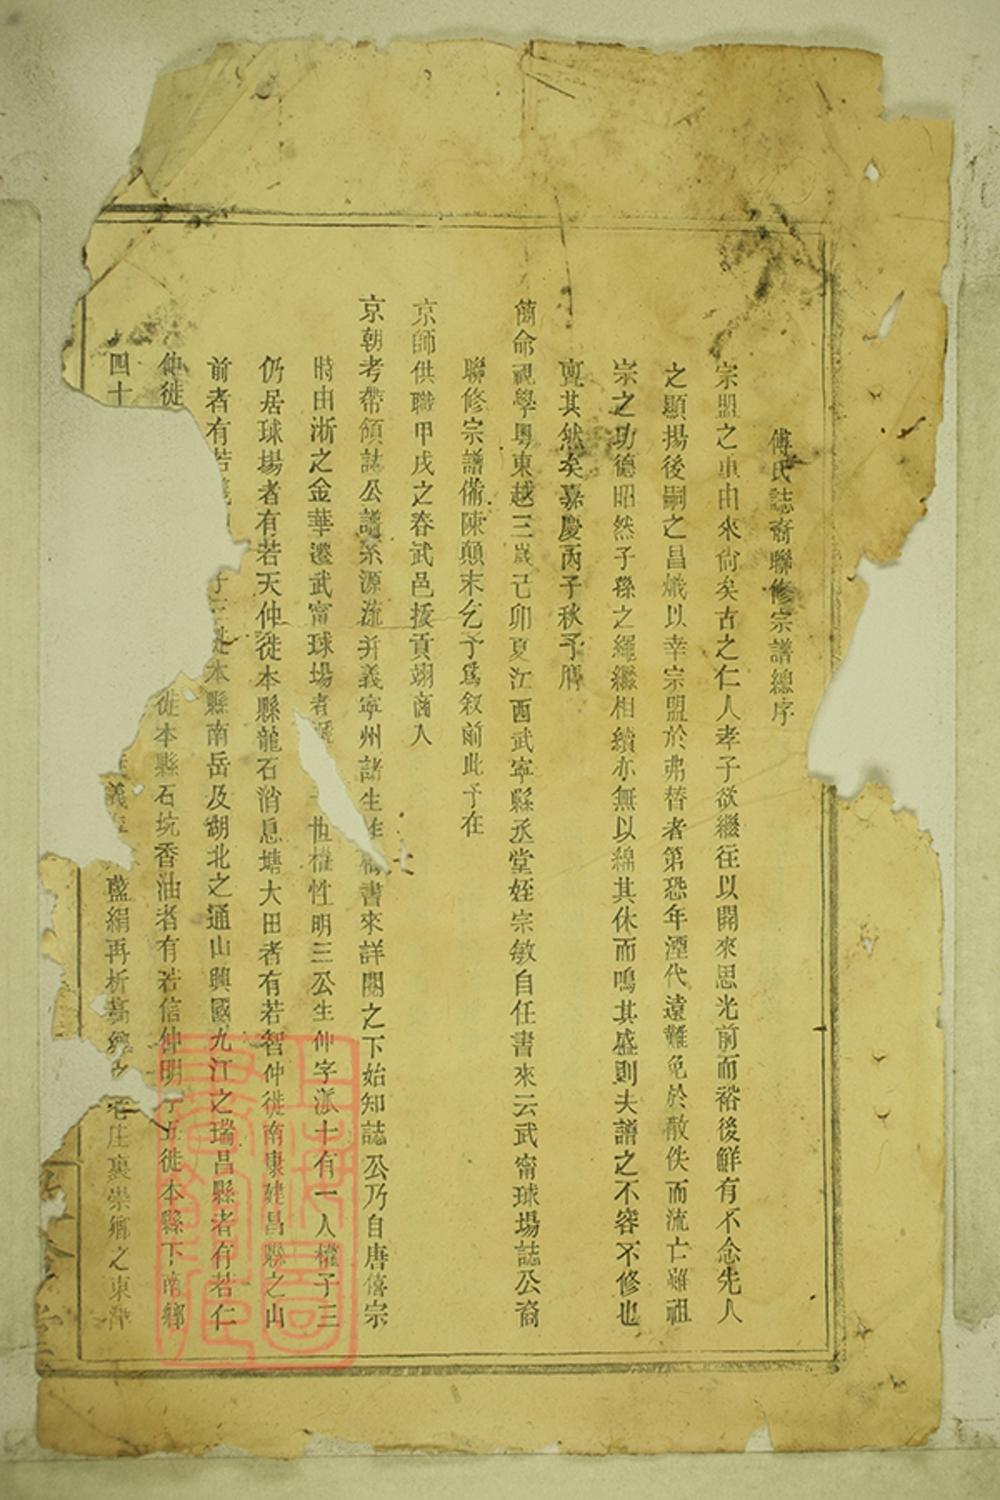 傅氏誌裔聯修宗譜總序
宗盟之重由來尙矣古之仁人孝子欲繼往以開來思光前而裕後鮮有不念先人
之顯揚後嗣之昌熾以幸宗盟於弗替者第恐年湮代遠難免於散佚而流亡雖祖
宗之功德昭然子孫之繩繼相續亦無以綿其休而鳴其盛則夫譜之不容不修也
亶其然矣嘉慶丙子秋予膺
簡命視學粵東越三歲己卯夏江西武寧縣丞堂姪宗敏自任書來云武甯球場誌公裔
聯修宗譜備陳顛末乞予爲叙前此予在
京師供職甲戌之春武邑拔貢翊商入
京朝考帶領誌公譜系源流并義寧州諸生書來詳閱之下始知誌公乃自唐僖宗
時由浙之金華遷武甯球場者世權性明三公生仲字派十有一人權子三
仍居球場者有若天仲徙本縣龍石消息塘大田者有若智仲徙南康建昌縣之山
前者有若子三徙本縣南岳及湖北之通山興國九江之瑞昌縣者有若仁
仲徙徙本縣石坑香油者有若信仲明子五徙本縣下南鄉
四十義藍絹再析庄裏崇鄉之東